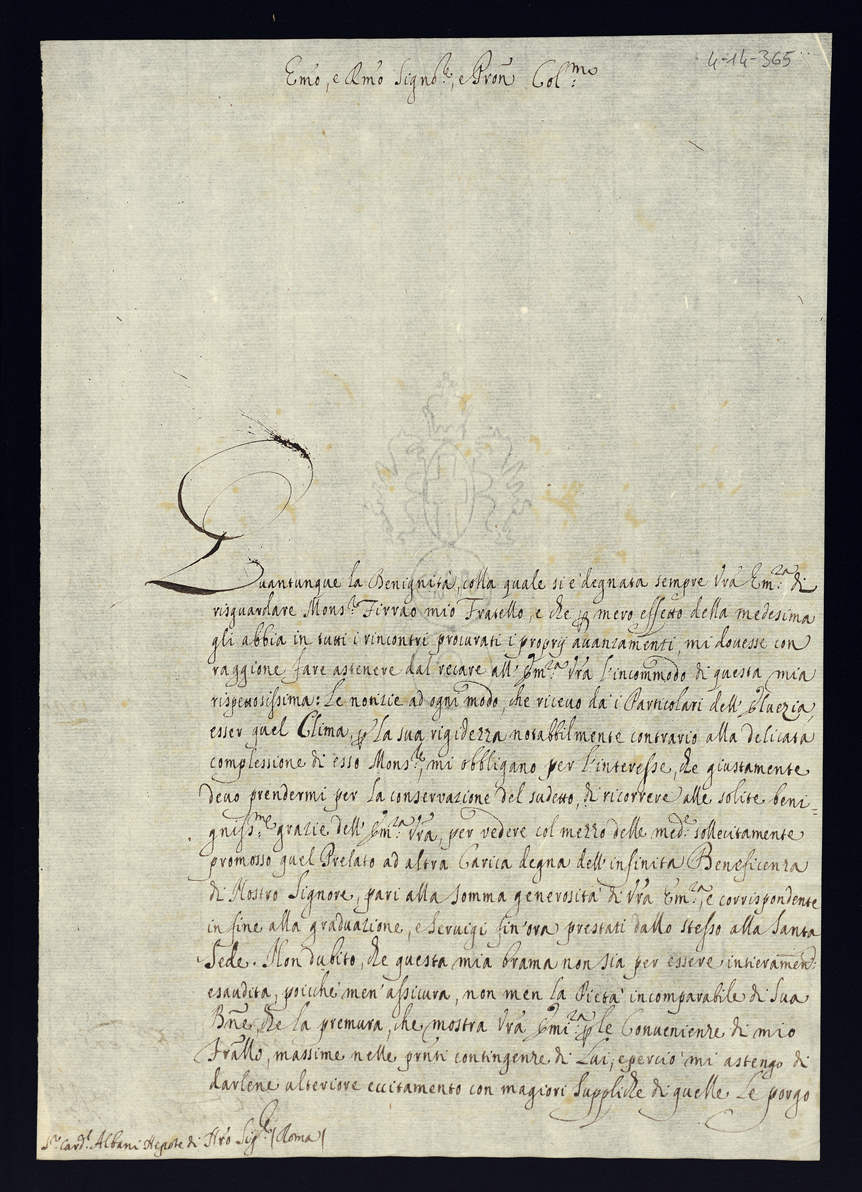 4-14-365
Emo, e Rmo Signore, e Pron Colmo
Quantunque la Benignità, colla quale si è degnata sempre Vra Emza di
risguardare Monsr Firrao mio Fratello, e che p mero effetto della medesima
gli abbia in tutti i rincontri procurati i proprij avanzamenti, mi dovesse con
raggione fare astenere dal recare all' Emza Vra l'incommodo di questa mia
rispettosissima: Le notizie ad ogni modo, che ricevo da' i Particolari dell' Elvezia,
esser quel Clima, p la sua rigidezza notabbilmente contrario alla delicata
complessione di esso Monsre, mi obbligano per l'interesse, che giustamente
devo prendermi per la conservazione del sudetto, di ricorrere alle solite beni=
gnissme grazie dell' Emza Vra, per vedere col mezzo delle mede sollecitamente
promosso quel Prelato ad altra Carica degna dell' infinita Beneficenza
di Nostro Signore, pari alla somma generosità di Vra Emza, e corrispondente
in fine alla graduazione, e servigi fin' ora prestati dallo stesso alla Santa
Sede. Non dubito, che questa mia brama non sia per essere intieramend:
esaudita, poicche men' assicura, non men la Pietà incomparabile di Sua
Bne, che la premura, che mostra Vra Emiza p le Convenienze di mio
Frallo, massime nelle pnti contingenze di Lui, e perciò mi astengo di
darlene ulteriore eccitamento con magiori Suppliche di quelle Le porgo
Sr Cardl Albani Nepote di Nro Sigre (Roma)